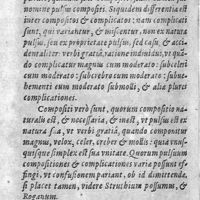 nomine pulsum compositi. Siquidem differentia est
inter compositos & complicatos: nam complicati
sunt, qui variantur, & miscentur, non ex natura
pulsus, seu ex proprietate pulsus, sed casu, & acci-
denaliter: verbi gratia, ratione individui, ut quā-
do complicatur magnus cum moderato: subceler
cum moderato: subcrebro cum moderato: subue-
hementi cum moderato submolli, & alia plures
complicationes.
Compositi verò sunt, quorum compositio na-
turalis est, & necessaria, & inest, ut pulsui est ex
natura sua, ut verbi gratia, quando componitur
magnus, velox, celer, creber & mollis: quia unus-
quisque simplex est sua unitate. Quorum pulsuum
compositiones & complicationes varia possunt ef-
fingi, ut confusionem pariant, ob id dimittenda,
si placet tamen, videre Struthium possumus, &
Roganum.